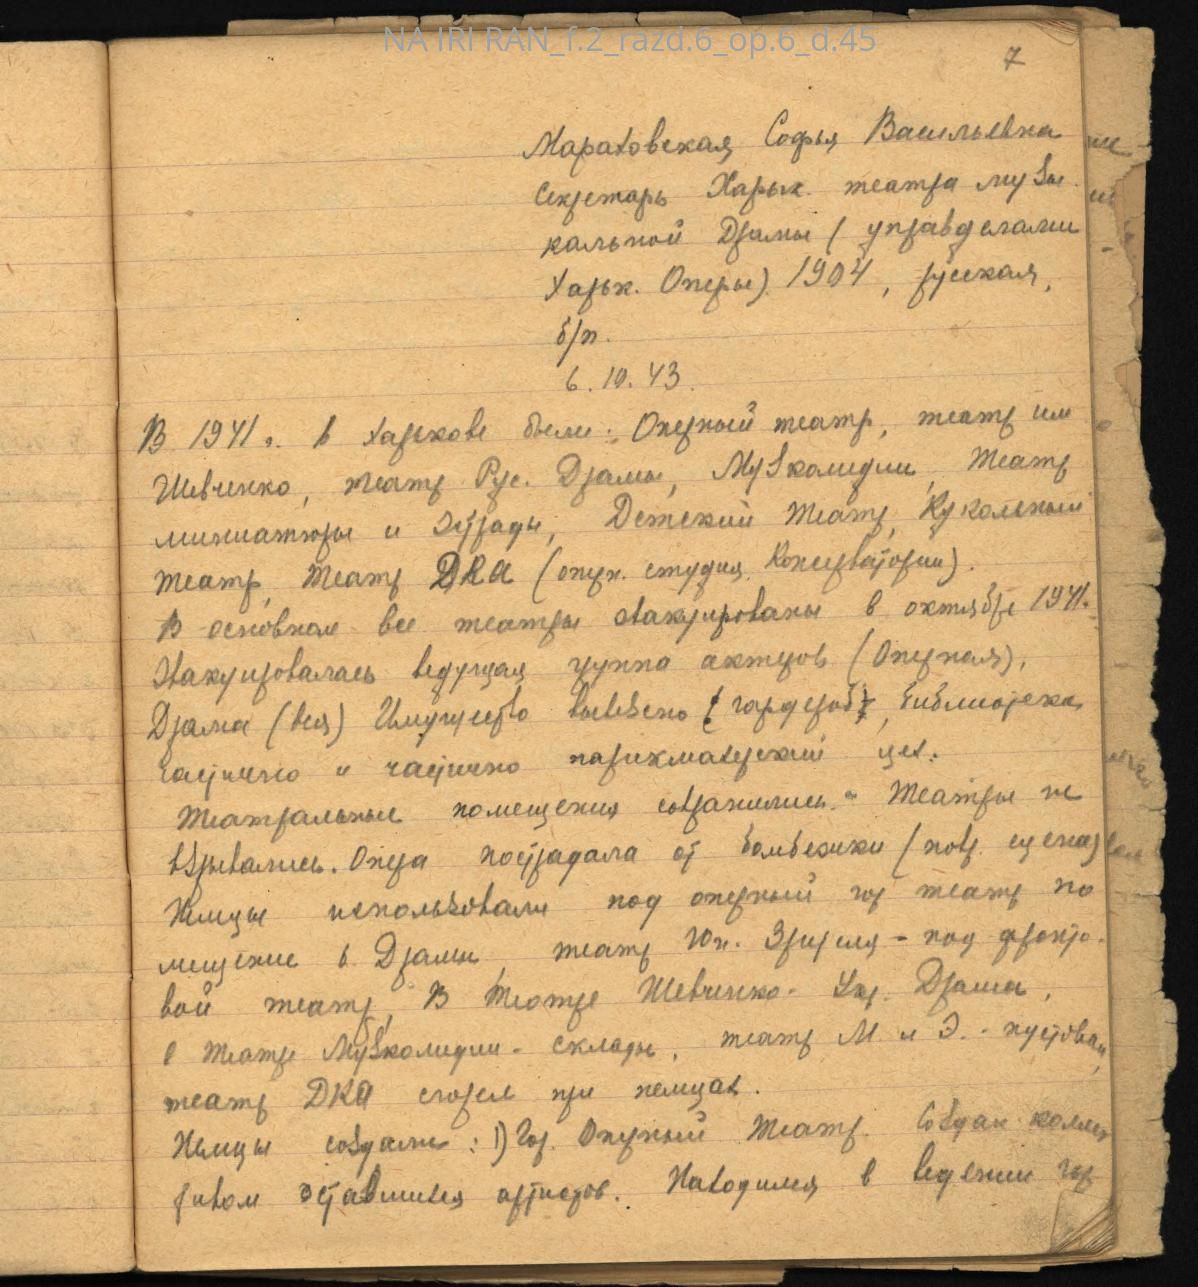 NA IRI RAN_f.2_razd.6_op.6_d.45
7
Мараховская Софья Васильевна
Секретарь Харьк. театра музы
кальной Драмы (управделами
Харьк. Оперы) 1904, русская,
б/п.
6.10.43.
В 1941 г. в Харькове были: Оперный театр, театр им
Шевченко, театр Рус. Драмы, Музкомедии, Театр
миниатюры и Эстрады, Детский Театр, Кукольный
театр, Театр ДКА (оперн. студия Консерватории).
В основном все театры эвакуированы в октябре 1941.
Эвакуировалась ведущая группа актеров (Оперная),
Драма (вся) Имущество вывезено гардероб, библиотека
частично и частично парикмахерский цех.
Театральные помещения сохранились - Театры не
взрывались. Опера пострадала от бомбежки (повр. сцена)
Немцы использовали под оперный гор театр по
мещение б. Драмы, театр Юн. Зрителя - под фронто-
вой театр, В Театре Шевченко - Укр. Драма,
в Театре Музкомедии - склады, театр М и Э. - пустовал,
театр ДКА сгорел при немцах.
Немцы создали: 1) Гор. Оперный Театр. Создан коллек
тивом оставшихся артистов. Находился в ведении гор